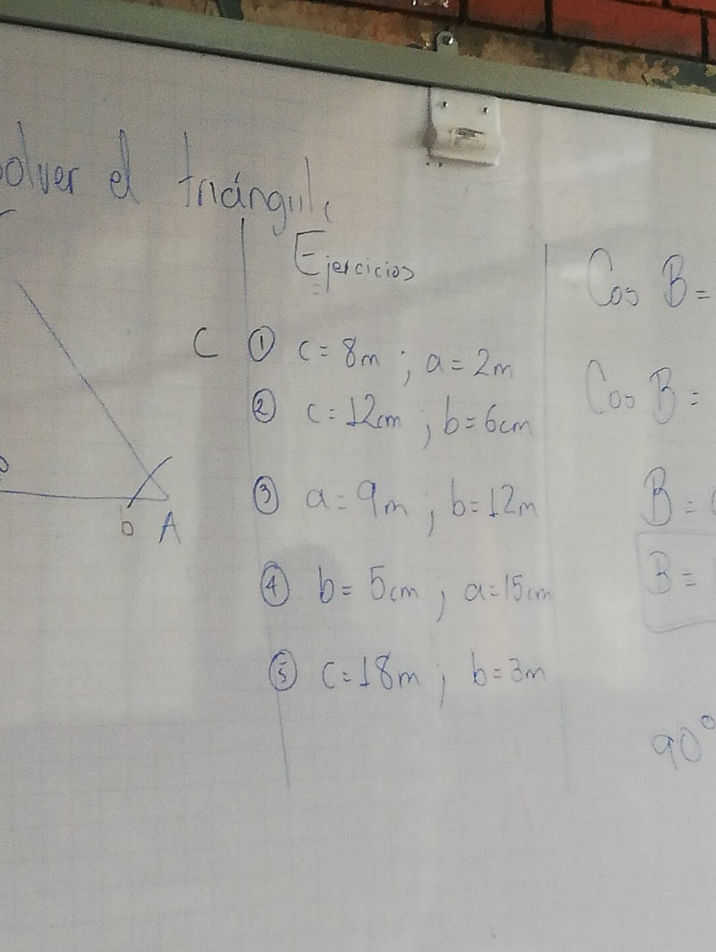 olver el triángul
Ejercicios
C ① c = 8m ; a = 2m
② c = 12cm ; b = 6cm
③ a = 9m ; b = 12m
④ b = 5cm ; a = 15cm
⑤ c = 18m ; b = 3m
b A
Cos B =
Cos B =
B =
B =
90°